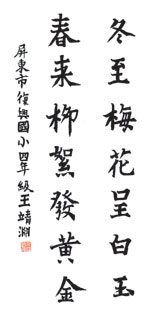 冬至梅花呈白玉
春来柳絮發黄金
屏東市復興國小四年級王靖淵